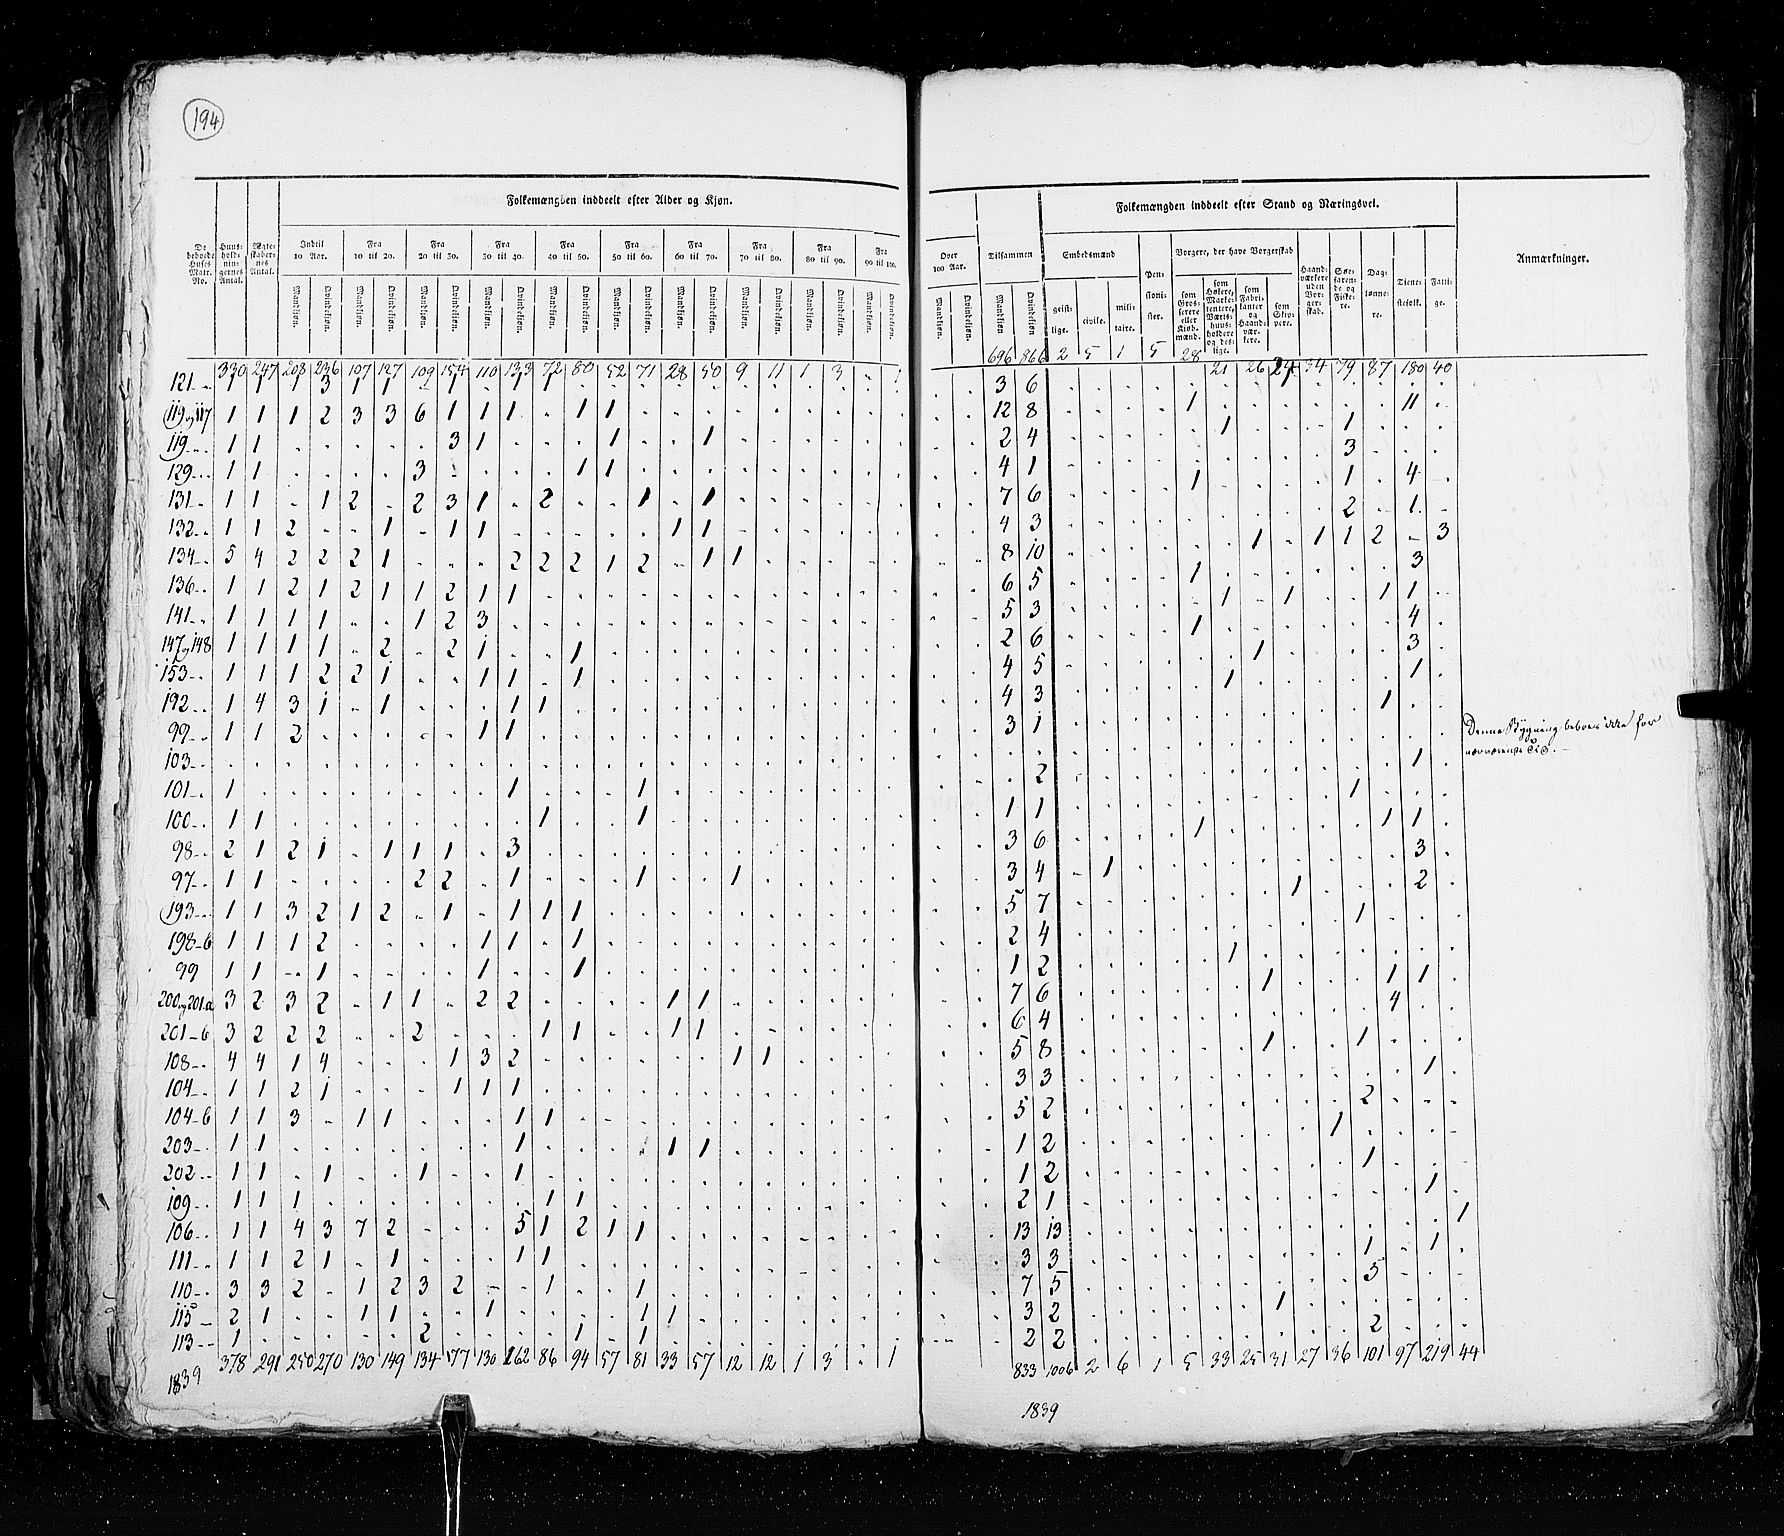 194
Folkemængden inddeelt efter Alder og Kjøn.
De beboede Huses Matr. No. | Huus- hold- nin- gernes Antal. | Ægte- skaber- nes Antal. | Indtil 10 Aar. | Fra 10 til 20. | Fra 20 til 30. | Fra 30 til 40. | Fra 40 til 50. | Fra 50 til 60. | Fra 60 til 70. | Fra 70 til 80. | Fra 80 til 90. | Fra 90 til 100.
Mandkjøn. Qvindekjøn. Mandkjøn. Qvindekjøn. Mandkjøn. Qvindekjøn. Mandkjøn. Qvindekjøn. Mandkjøn. Qvindekjøn. Mandkjøn. Qvindekjøn. Mandkjøn. Qvindekjøn. Mandkjøn. Qvindekjøn. Mandkjøn. Qvindekjøn. Mandkjøn. Qvindekjøn.
330 247 208 236 107 127 109 154 110 133 72 80 52 71 28 50 9 11 1 3 . 1
121
119 og 117 1 1 1 2 3 3 6 1 1 1 . 1 1
119 1 1 . . . . . 3 1 . . . 1 . . 1
129 1 1 . . . . 3 . . . . 1 1
131 1 1 . 1 2 . 2 3 1 . 2 . . 1 . 1
132 1 1 2 . . 1 . 1 1 . . . . . 1 1
134 5 4 2 2 2 1 . . . 2 2 2 1 2 . 1 1
136 1 1 2 1 2 1 1 2 1 1
141 1 1 1 1 . . 1 2 3
147 og 148 1 1 1 1 . 2 . 2 1 . . 1
153 1 1 1 2 2 1 . . 1 1 . 1
192 1 4 3 1 . 1 . . . 1 1
99 1 1 2 . . . . . 1 1
103
101 1 . . . . . . . . 1 . . . 1
100 1 1 . . . . . . . . 1 . . 1
98 2 1 2 1 . 1 1 1 . 3
97 1 1 . . . . 2 2 . 1 . . . 1 . . 1
193 1 1 3 2 1 2 . 1 . 1 1 1
198-b 1 1 1 2 . . . . 1 1 . 1
99 1 1 . 1 . . . . 1 . . 1
200 og 201.a 3 2 3 2 . 1 1 . 2 2 . . . . 1 1
201-b 3 2 2 2 . . 2 . . . 1 1 . . 1 1
108 4 4 1 4 . . . 1 3 2 . . . . . . 1 1
104 1 1 2 1 . . . 1 1 1
104-b 1 1 3 . 1 1 . . . 1 1
203 1 1 . . . . . . . 1 . . . . 1 1
202 1 1 . 1 . . 1 . . 1
109 1 1 1 . . . . . . . 1 1
106 1 1 4 3 7 2 . . . 5 1 2 1 1
111 1 1 2 1 . 1 . . . 1 1
110 3 3 2 . 1 2 3 2 . . 1 . . 1
115 2 1 . . 1 1 . . 1 . . . . 1 1
113 1 . . . . . 2 . . . . 1 . 1
378 291 250 270 130 149 134 177 130 162 86 94 57 81 33 57 12 12 1 3 . 1
1839
Folkemængden inddeelt efter Stand og Næringsvei.
Over 100 Aar. | Tilsammen | Embedsmænd | Pen- sioni- ster. | Borgere, der have Borgerskab | Haand- værkere uden Bor- ger- skab. | Søe- faren- de og Fiske- re. | Dag- lønne- re. | Tiene- stefolk. | Fatti- ge. | Anmærkninger.
Mandkjøn. Qvindekjøn. | Mandkjøn Qvindekjøn | geist- lige. | civile. | mili- taire. | som Gros- serere eller Kjøb- mænd. | som Høkere, Marke- tentere, Værts- huus- holdere og des- lige. | som Fabri- kanter og Haand- vær- kere. | som Skip- pere.
696 866 2 5 1 5 28 21 26 29 34 79 87 180 40
3 6
12 8 1 11
2 4 1 1
4 1 3
7 6 1 1 4
4 3 2 1
8 10 1 1 1 2 3
6 5 1 3
5 3 1 1 1 1
2 6 1 4
4 5 1 3
4 3 1 1
3 1 1
Denne Bygning beboes ikke for
nærværende Tid.
. 2 1
1 1 1
3 6 1 1 1
3 4 1 3
5 7 1 2
2 4 1
1 2 1
7 6 1 1 1
6 4 4
5 8 1 1
3 3 1
5 2 2
1 2 1
1 2 1
2 1 1
13 13 1
3 3 1 1
7 5 5
3 2 1
2 2 2
833 1006 2 6 1 5 33 25 31 27 36 101 97 219 44
1839